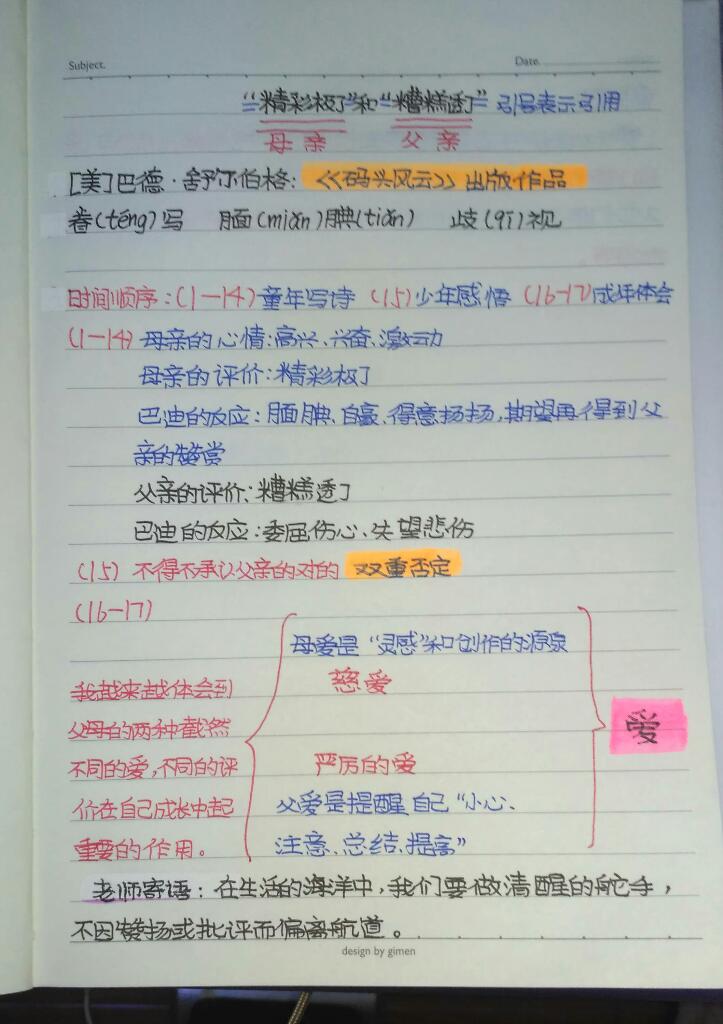 Subject. Date.
“精彩极了”和“糟糕透了” 引号表示引用
母亲 父亲
[美]巴德·舒尔伯格：《码头风云》出版作品
誊(téng)写 腼(miǎn)腆(tiǎn) 歧(qī)视
时间顺序：(1—14)童年写诗 (15)少年感悟 (16—17)成年体会
(1—14) 母亲的心情：高兴、兴奋、激动
母亲的评价：精彩极了
巴迪的反应：腼腆、自豪、得意扬扬，期望再得到父
亲的赞赏
父亲的评价：糟糕透了
巴迪的反应：委屈伤心、失望悲伤
(15) 不得不承认父亲的对的 双重否定
(16—17)
母爱是“灵感”和创作的源泉
慈爱
我越来越体会到
父母的两种截然
不同的爱，不同的评
价在自己成长中起
重要的作用。
严厉的爱
父爱是提醒自己“小心、
注意、总结、提高”
爱
老师寄语：在生活的海洋中，我们要做清醒的舵手，
不因赞扬或批评而偏离航道。
design by gimen